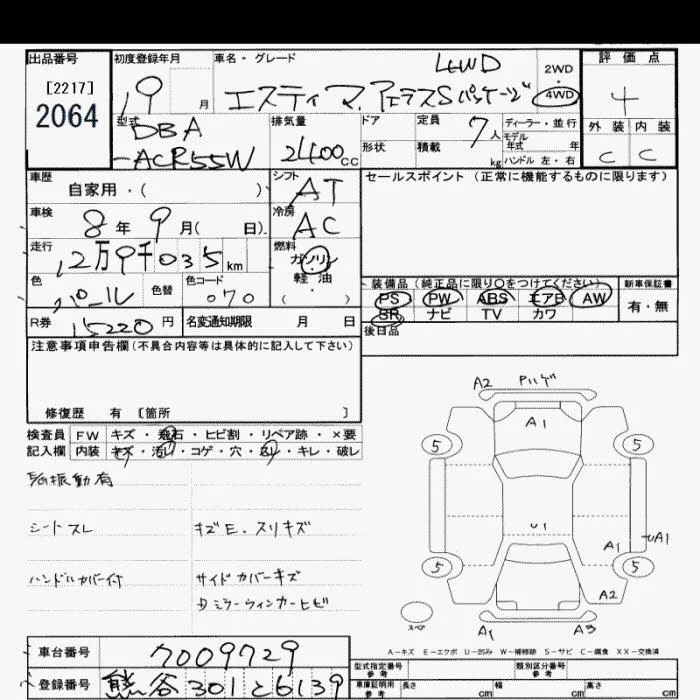 出品番号 初度登録年月 車名・グレード 2WD ・ 4WD 評価点
[2217] 2064
19 月 エスティマ.アエラスSパッケージ 4WD 4
型式 DBA-ACR55W
排気量 2400cc
ドア 形状 定員 7人 積載 kg
ディーラー・並行 モデル年式 年式 ハンドル 左・右
外装 内装
C C
車歴 自家用・( )
シフト AT
セールスポイント(正常に機能するものに限ります)
車検 8年9月( 日)
冷房 AC
走行 12万9千035km
燃料 ガソリン 軽油 ( ・ )
色 パール 色替 色コード 070
装備品(純正品に限り○をつけてください) 新車保証書
PS PW ABS エアB AW 有・無
SR ナビ TV カワ
R券 15220円 名変通知期限 月 日
後日品
注意事項申告欄(不具合内容等は具体的に記入して下さい)
修復歴 有〔箇所 〕
検査員 FW キズ・飛石・ヒビ割・リペア跡・×要
記入欄 内装 キズ・汚レ・コゲ・穴・スレ・キレ・破レ
振動有
シートスレ キズE.スリキズ
ハンドルカバー付 サイドカバーキズ
ミラーウィンカーヒビ
A2 Pハゲ
A1
5 5
U1
A1 UA1
5 5
A2
スペア A1 A3
A−キズ E−エクボ U−凹み W−補修跡 S−サビ C−腐食 XX−交換済
車台番号 7009729
登録番号 熊谷301と6139
型式指定番号 参考 類別区分番号 参考
車庫証明用 参考 長さ cm 幅 cm 高さ cm